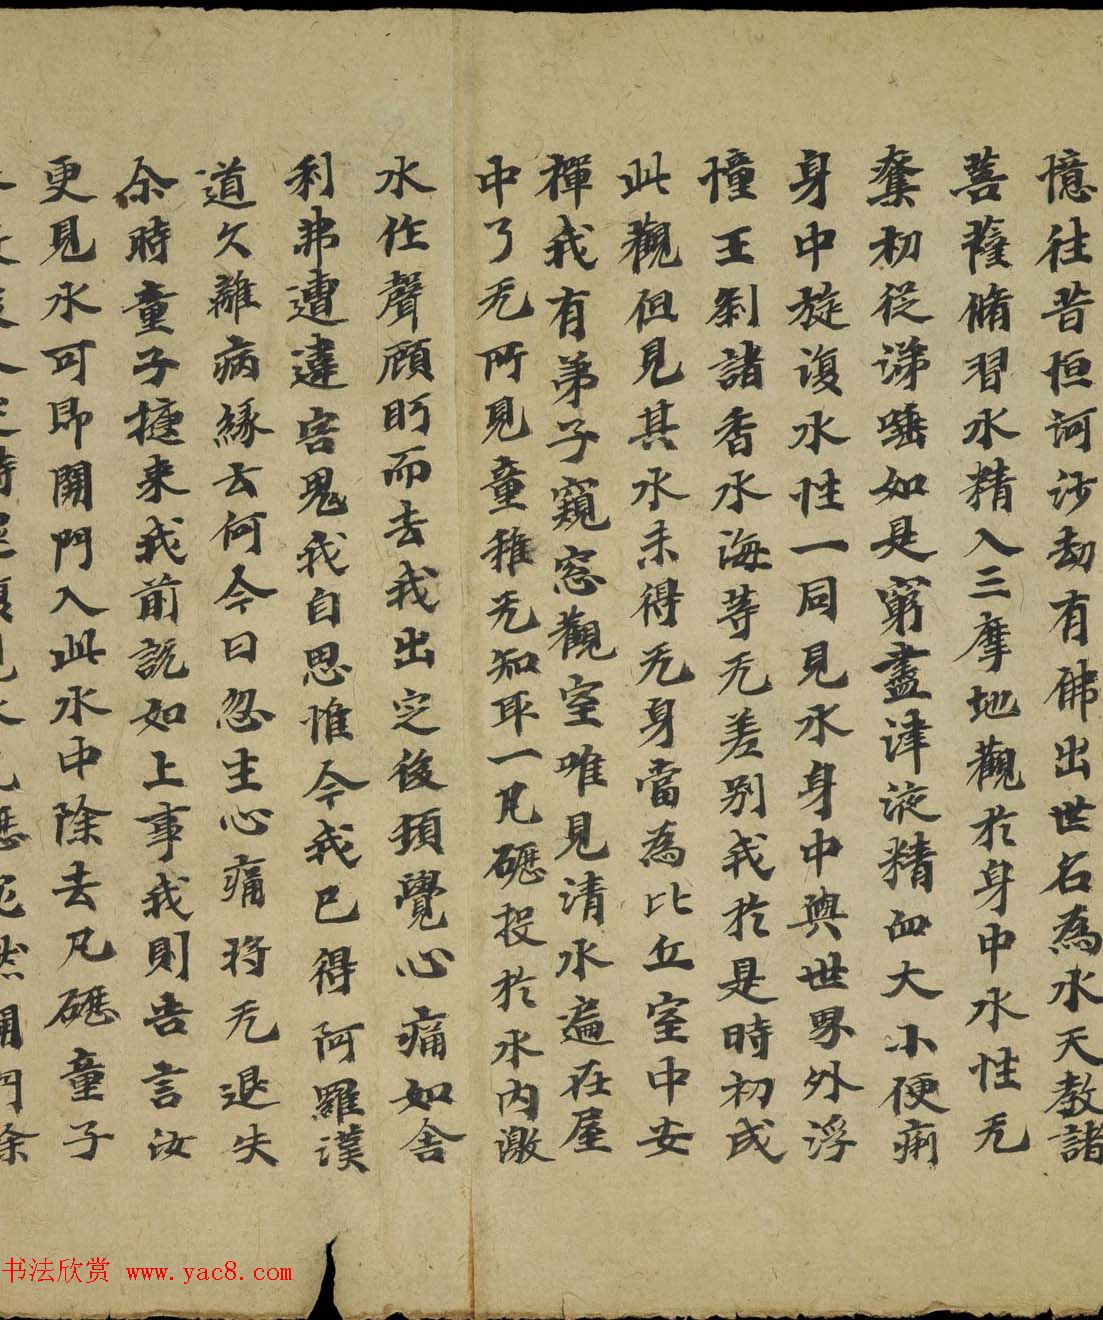 憶往昔恒河沙劫有佛出世名為水天教諸
菩薩脩習水精入三摩地觀於身中水性无
奪初從涕唾如是窮盡津液精血大小便痢
身中旋澓水性一同見水身中與世界外浮
憧王剎諸香水海等无差別我於是時初成
此觀但見其水未得无身當為比丘室中安
禪我有弟子窺窓觀室唯見清水遍在屋
中了无所見童稚无知取一凡礰投於水内激
水作聲顧眄而去我出定後頓覺心痛如舍
利弗遭違害鬼我自思惟今我已得阿羅漢
道久離病緣云何今日忽生心痛將无退失
尒時童子揵来我前說如上事我則告言汝
更見水可即開門入此水中除去凡礰童子
然開門除
书法欣赏 www.yac8.com